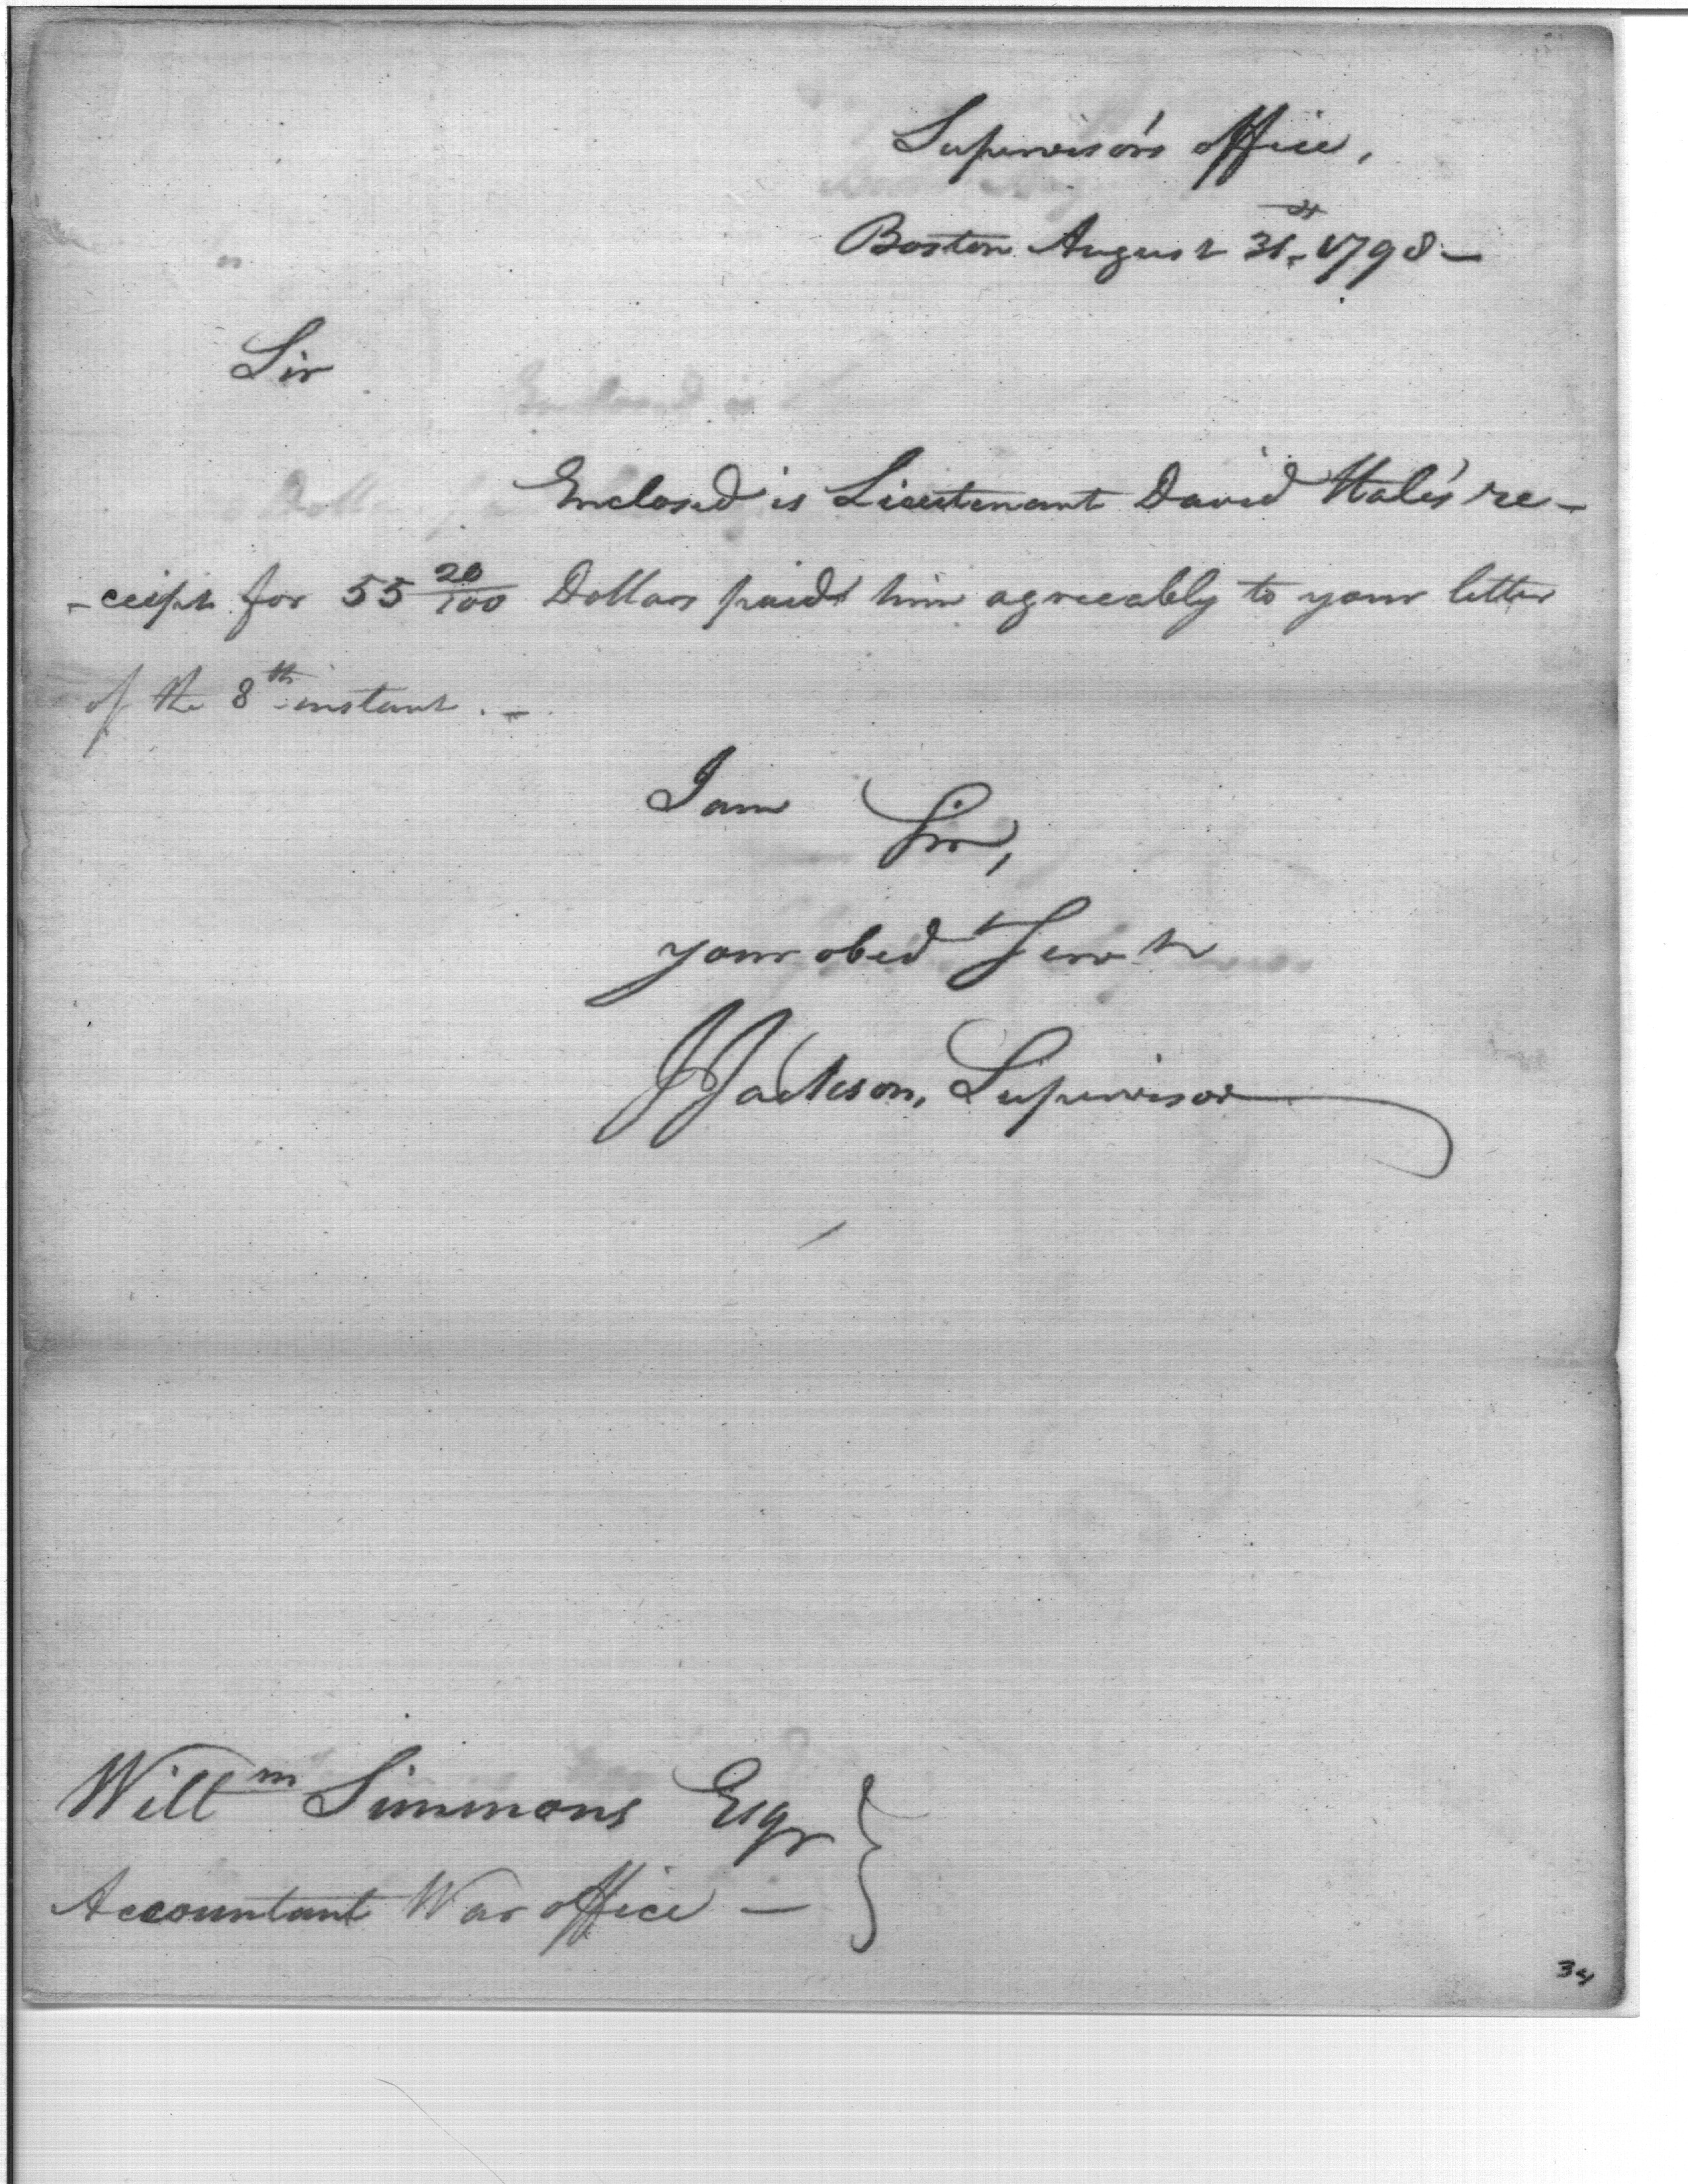 Supervisor's office,
Boston August 31st 1798 —
Sir
Enclosed is Lieutenant David Hale's re-
-ceipt for 55 20/100 Dollars paid him agreeably to your letter
of the 8th instant. —
I am Sir,
your obedt Servt
J Jackson, Supervisor
Willm Simmons Esqr
Accountant War office —
34